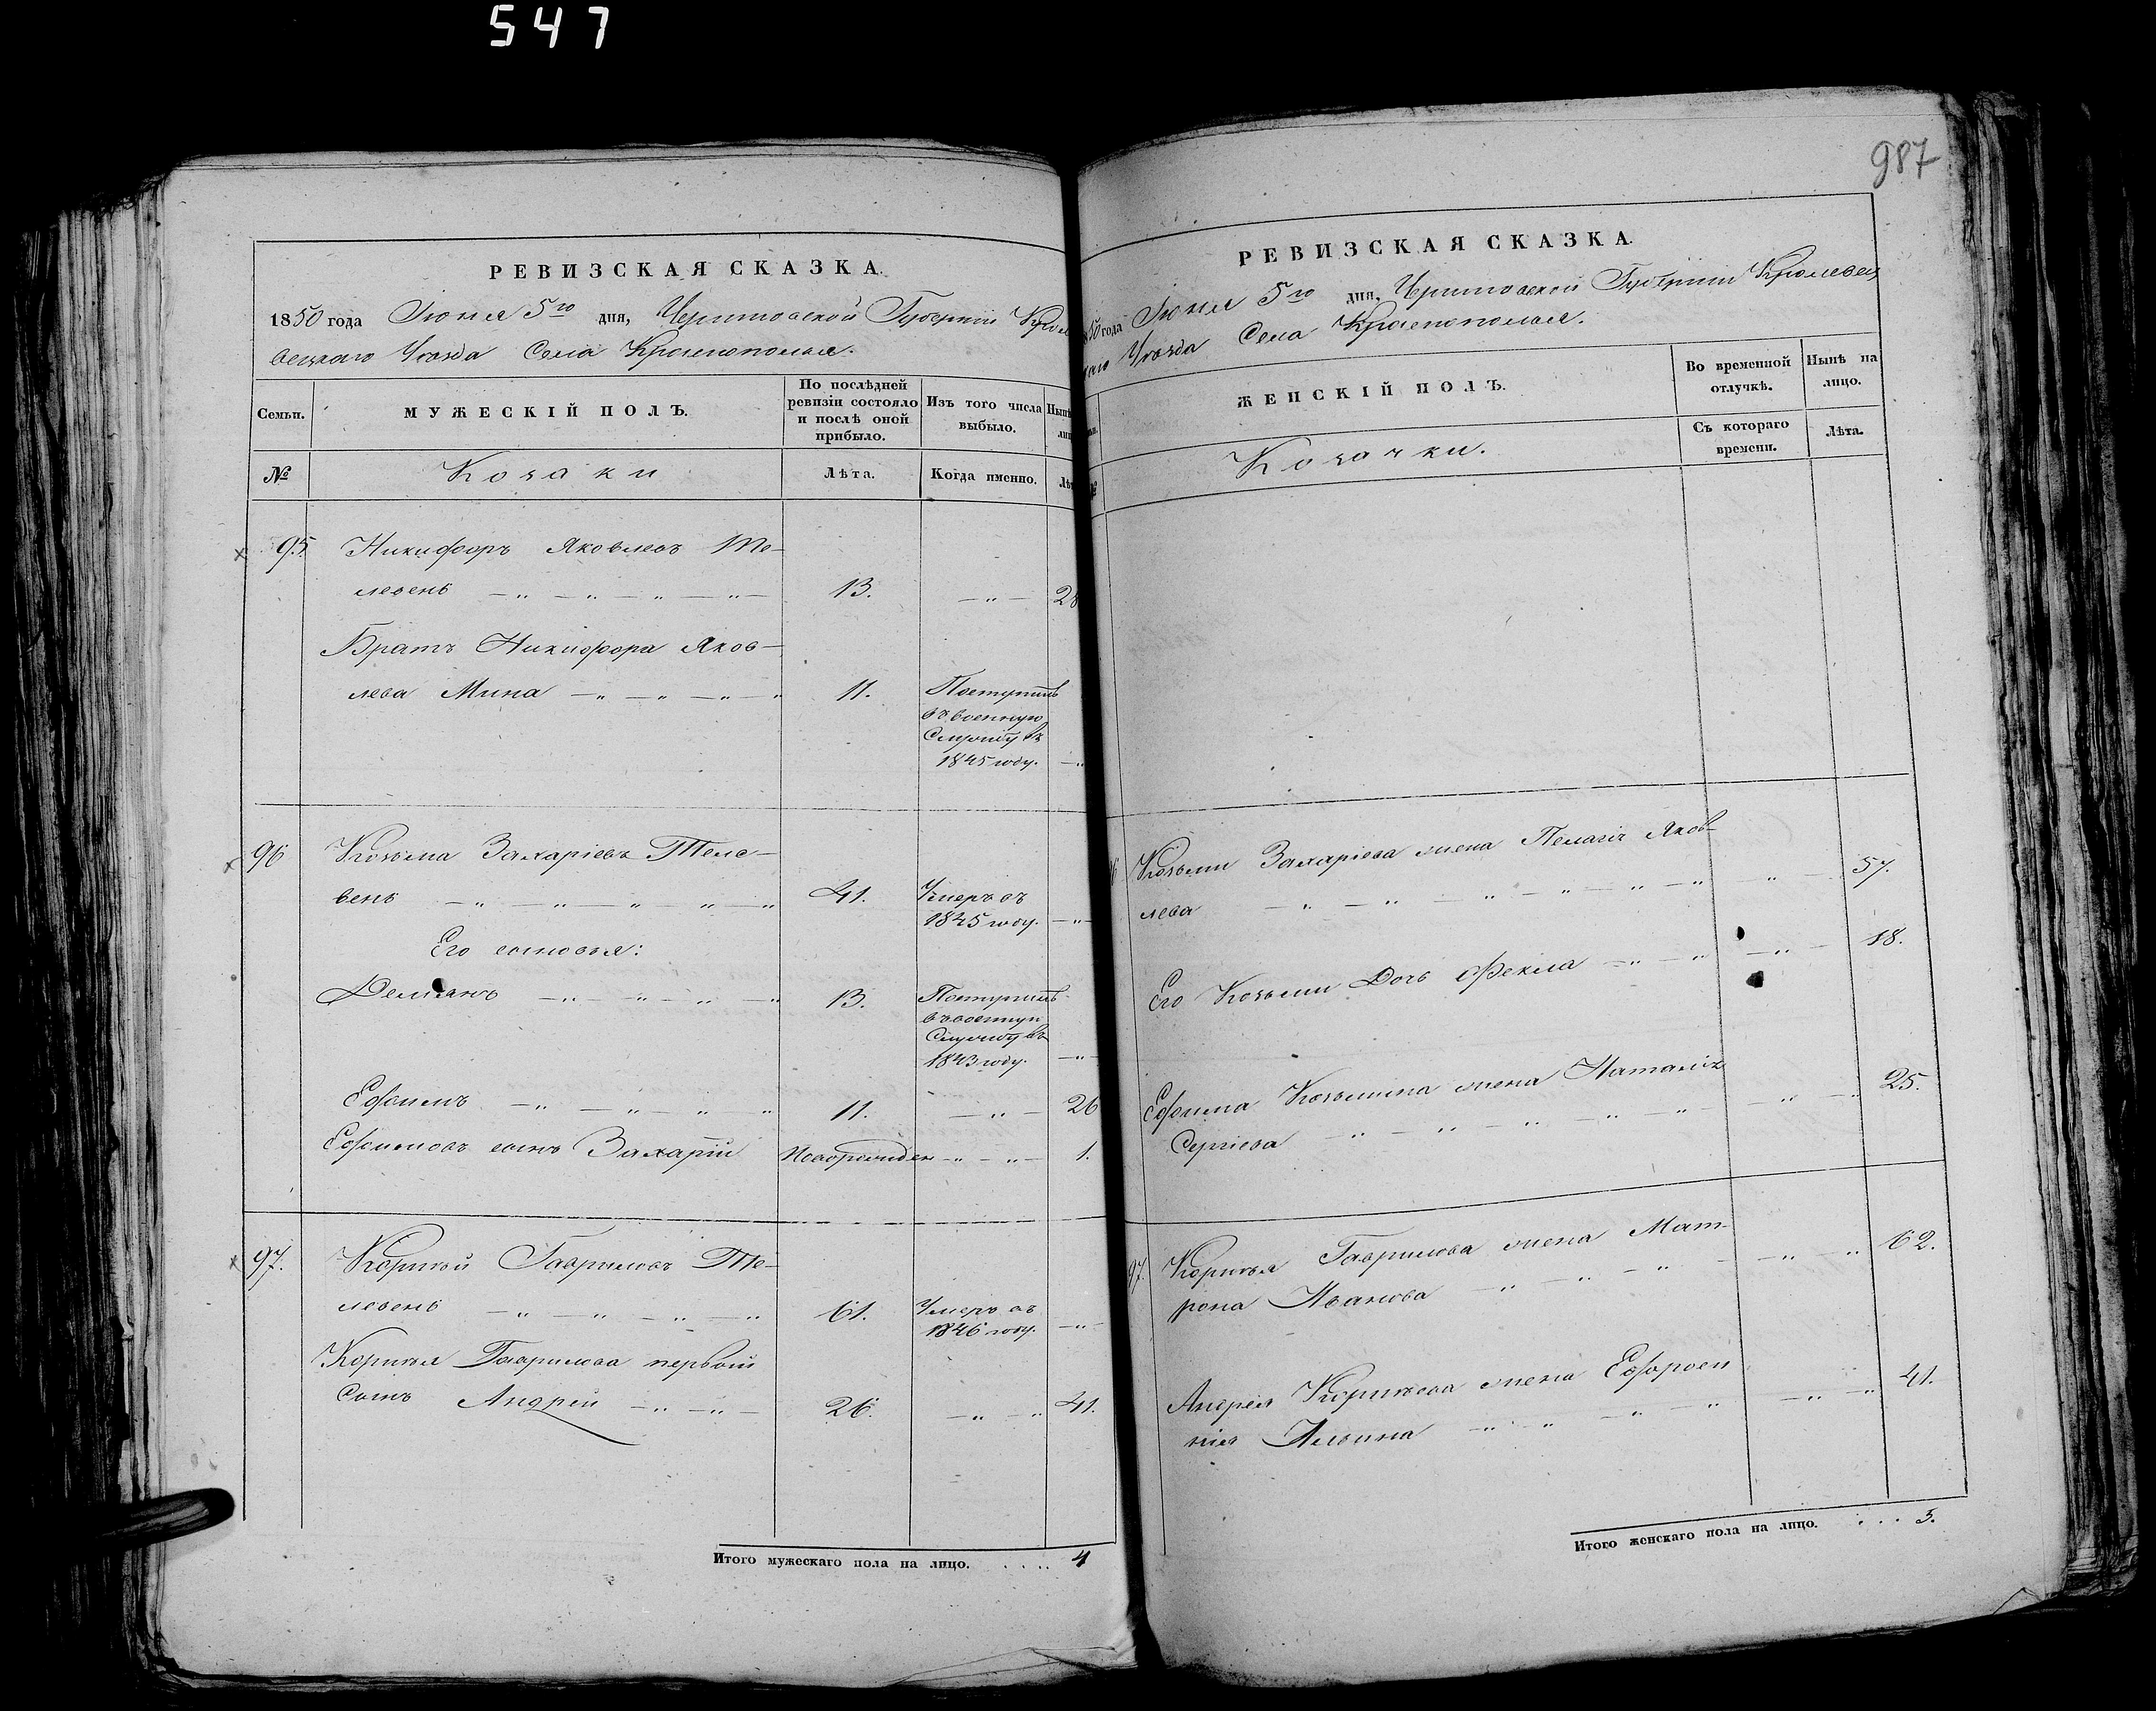 547
РЕВИЗСКАЯ СКАЗКА.
1850 года Іюня 5го дня, Черниговской Губерніи Крол
вецкаго Уѣзда Села Краснополья.
Семьи.
МУЖЕСКІЙ ПОЛЪ.
По послѣдней
ревизіи состояло
и послѣ оной
прибыло.
Изъ того числа
выбыло.
Нынѣ
лиц
№
Козаки
Лѣта.
Когда именно.
Лѣт
95
Никифоръ Яковлевъ Те-
левень
13.
28
Братъ Никифора Яков-
лева Мина
11.
Поступилъ
въ военную
Службу въ
1845 году.
96
Козьма Захаріевъ Теле-
вень
41.
Умеръ въ
1845 году.
Его сыновья:
Демьянъ
13.
Поступилъ
въ военную
Службу въ
1843 году.
Ефимъ
11.
26
Ефимовъ сынъ Захарій
Новорожден
1.
97.
Корнѣй Гавриловъ Те-
левень
61.
Умеръ въ
1846 году.
Корнѣя Гаврилова первый
Сынъ Андрей
26.
41.
Итого мужескаго пола на лицо. . . . . 4
987
РЕВИЗСКАЯ СКАЗКА.
50 года Іюня 5го дня, Черниговской Губерніи Кролевец
каго Уѣзда Села Краснополья.
ЖЕНСКІЙ ПОЛЪ.
Во временной
отлучкѣ.
Нынѣ на
лицо.
№
Козачки.
Съ котораго
времени.
Лѣта.
6
Козьмы Захаріева жена Пелагія Яков-
лева
57.
Его Козьмы Дочь Фекла
18.
Ефима Козьмина жена Наталія
Сергіева
25.
97.
Корнѣя Гаврилова жена Мат-
рона Иванова
62.
Андрея Корнѣева жена Ефроси
нія Ильина
41.
Итого женскаго пола на лицо. . . . 5.